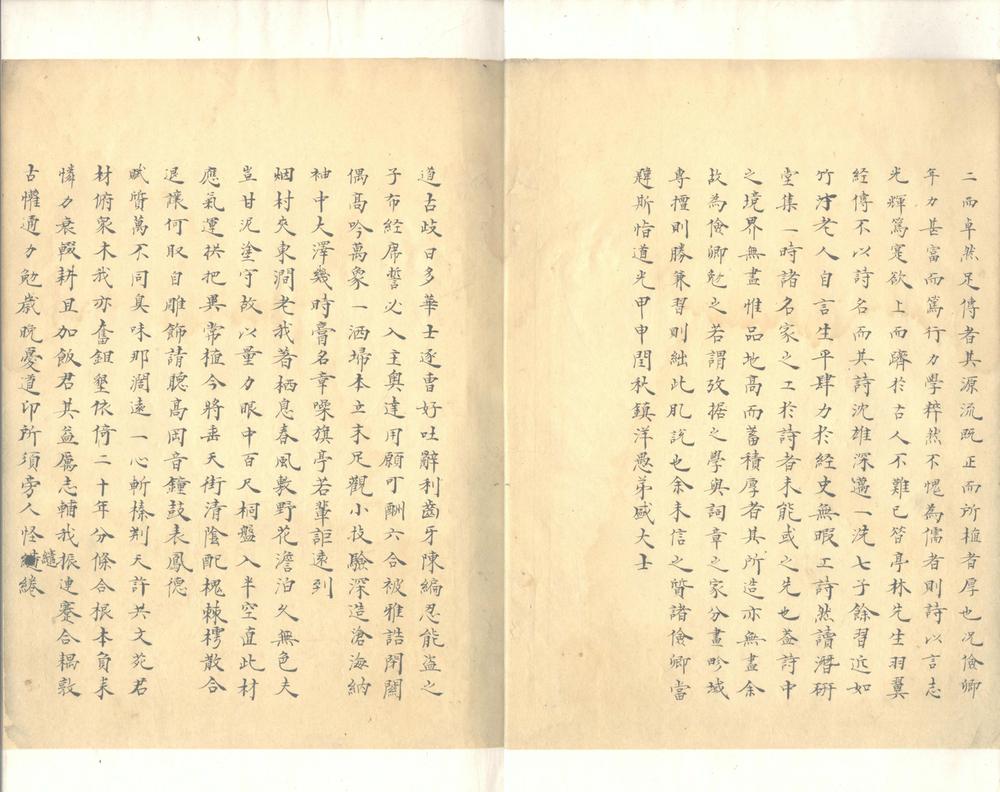 二而卓然足傳者其源流旣正而所植者厚也况儉卿
年力甚富而篤行力學粹然不愧為儒者則詩以言志
光輝篤寔欲上而躋於古人不難已昔亭林先生羽翼
經傳不以詩名而其詩沈雄深邁一洗七子餘習近如
竹汀老人自言生平肆力於經史無暇工詩然讀潛研
堂集一時諸名家之工於詩者未能或之先也蓋詩中
之境界無盡惟品地高而蓄積厚者其所造亦無盡余
故為儉卿勉之若謂攷据之學與詞章之家分畫畛域
專擅則勝兼習則絀此凡說也余未信之質諸儉卿當
韙斯恉道光甲申閏秋鎮洋愚弟盛大士
道古歧日多華士逐曹好吐辭利齒牙陳編忍能盜之
子布經席誓必入主奧達用願可酬六合被雅誥閉關
偶高吟萬象一洒埽本立末足觀小技驗深造滄海納
袖中大澤幾時膏名章噪旗亭若輩詎遠到
烟村夾東澗老我著栖息春風敷野花澹泊久無色夫
豈甘泥塗守故以量力眼中百尺桐盤入半空直此材
應氣運拱把異常植今將垂天街清陰配槐棘樗散合
退讓何取自雕飾請聽高岡音鐘鼓表鳳德
賦質萬不同臭味那濶遠一心斬榛荆天許共文苑若
材俯衆木我亦奮鉏墾依倚二十年分條合根本負耒
憐力衰輟耕且加飯君其益厲志輔我振連蹇合耦敦
古懽通力勉歲晚憂道印所須旁人怪繾綣